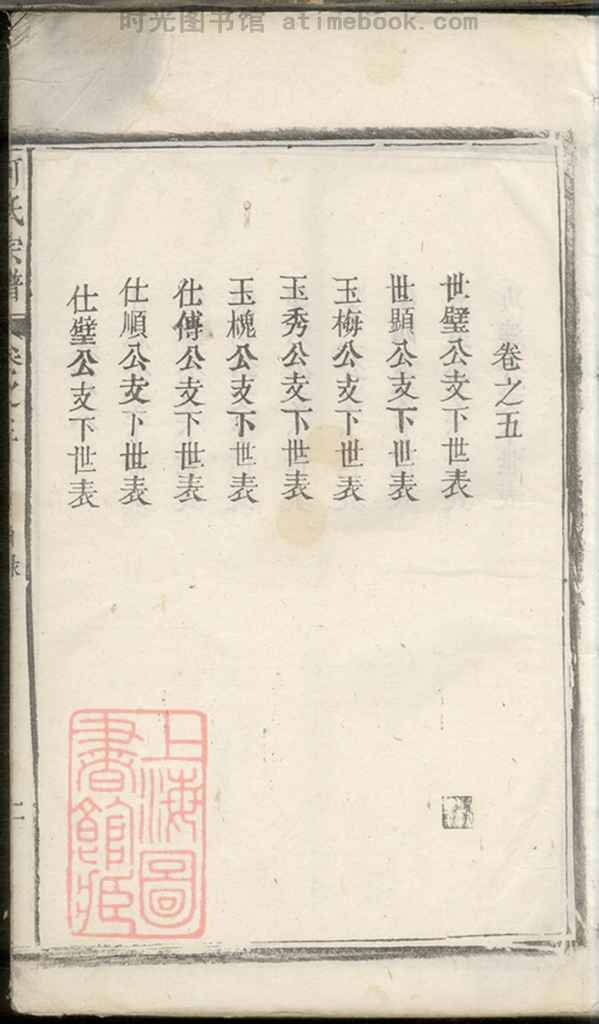 时光图书馆 atimebook.com
卷之五
世璧公支下世表
世顯公支下世表
玉梅公支下世表
玉秀公支下世表
玉槐公支下世表
仕傅公支下世表
仕順公支下世表
仕璧公支下世表
氏宗譜
卷之
上海圖
書館藏